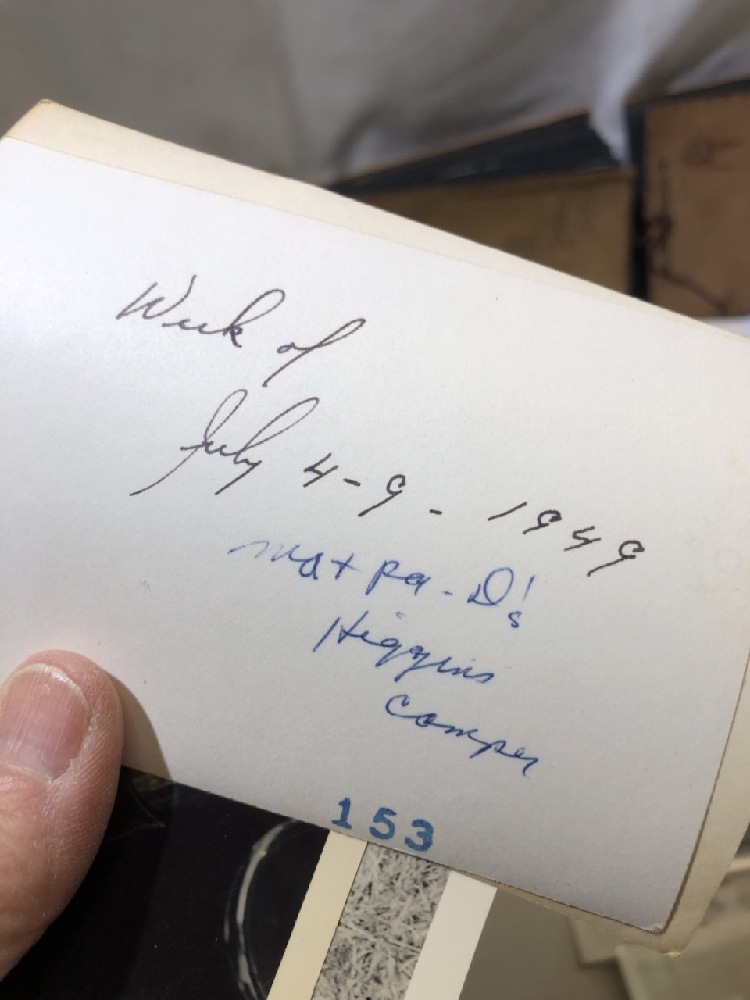 Week of
July 4-9- 1949
Ma + Pa - D's
Higgins
Camper
153